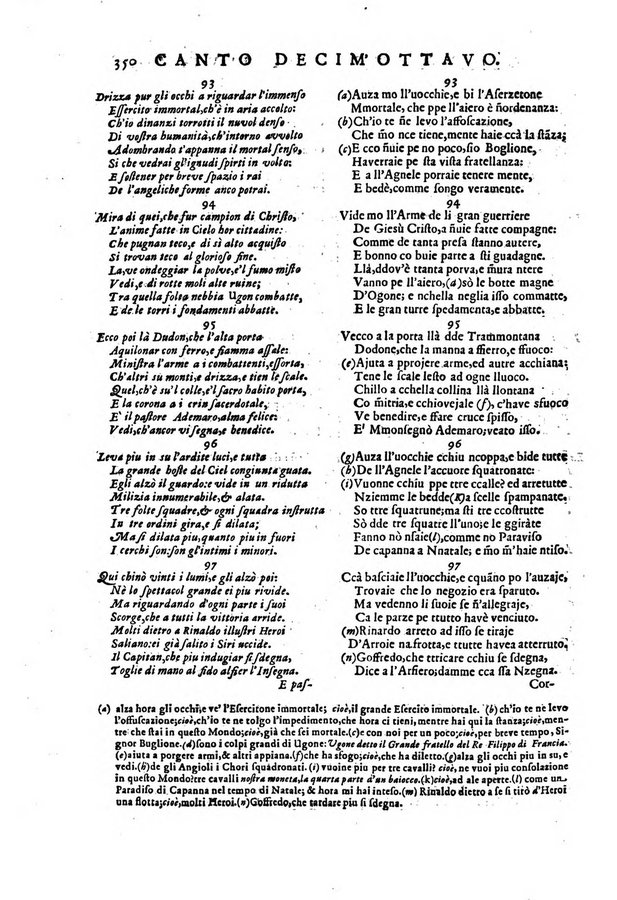 350 CANTO DECIM'OTTAVO.
93
Drizza pur gli occhi a riguardar l'immenso
Essercito immortal,ch'è in aria accolto:
Ch'io dinanzi torrotti il nuvol denso
Di vostra humanità,ch'intorno avvolto
Adombrando t'appanna il mortal senso,
Si che vedrai gl'ignudi spirti in volto:
E sostener per breve spazio i rai
De l'angeliche forme anco potrai.
94
Mira di quei,che fur campion di Christo,
L'anime fatte in Cielo hor cittadine:
Che pugnan teco,e di sì alto acquisto
Si trovan teco al glorioso fine.
Là,ve ondeggiar la polve,e'l fumo misto
Vedi,e di rotte moli alte ruine;
Tra quella folta nebbia Ugon combatte,
E de le torri i fondamenti abbatte.
95
Ecco poi là Dudon,che l'alta porta
Aquilonar con ferro,e fiamma assale:
Ministra l'arme a i combattenti,essorta,
Ch'altri su monti,e drizza,e tien le scale.
Quel,ch'è su'l colle,e'l sacro habito porta,
E la corona a i crin sacerdotale,
E' il pastore Ademaro,alma felice:
Vedi,ch'ancor vi segna,e benedice.
96
Leva piu in su l'ardite luci,e tutta
La grande hoste del Ciel congiunta guata.
Egli alzò il guardo:e vide in un ridutta
Milizia innumerabile,& alata.
Tre folte squadre,& ogni squadra instrutta
In tre ordini gira,e si dilata;
Ma si dilata piu,quanto piu in fuori
I cerchi son:son gl'intimi i minori.
97
Qui chinò vinti i lumi,e gli alzò poi:
Nè lo spettacol grande ei piu rivide.
Ma riguardando d'ogni parte i suoi
Scorge,che a tutti la vittoria arride.
Molti dietro a Rinaldo illustri Heroi
Saliano:ei già salito i Siri uccide.
Il Capitan,che piu indugiar si sdegna,
Toglie di mano al fido alfier l'Insegna.
E pas-
93
(a)Auza mo ll'uocchie,e bi l'Aserzetone
Mmortale, che ppe ll'aiero è ñordenanza:
(b)Ch'io te ñe levo l'affoscazione,
Che m̃o nce tiene,mente haie ccà la stãza;
(c)E cco ñuie pe no poco,sio Boglione,
Haverraie pe sta vista fratellanza.
E a ll'Agnele porraie tenere mente,
E bedè,comme songo veramente.
94
Vide mo ll'Arme de li gran guerriere
De Giesù Cristo,a ñuie fatte compagne:
Comme de tanta presa stanno autere,
E bonno co buie parte a sti guadagne.
Llà,ddov'è ttanta porva,e m̃ura ntere
Vanno pe ll'aiero,(d)sò le botte magne
D'Ogone; e nchella neglia isso commatte,
E le gran turre spedamenta,e abbatte.
95
Vecco a la porta llà dde Trammontana
Dodone,che la manna a ffierro,e ffuoco:
(e)Ajuta a pprojere arme,ed autre acchiana:
Tene le scale lesto ad ogne lluoco.
Chillo a cchella collina llà llontana
Co mitria,e cchiovejale (f), c'have sfuoco
Ve benedire,e ffare cruce spisso,
E' Mmonsegnò Ademaro;veato isso.
96
(g)Auza ll'uocchie cchiu ncoppa,e bide tutte
(h)De ll'Agnele l'accuore squatronate:
(i)Vuonne cchiu ppe ttre ccalle? ed arretutte
Nziemme le bedde(k)a scelle spampanate.
So ttre squatrune;ma sti tre ccostrutte
Sò dde ttre squatre ll'uno;e le ggiràte
Fanno nò nsaie(l),commo no Paraviso
De capanna a Nnatale; e m̃o m'haie ntiso.
97
Ccà basciaie ll'uocchie,e cquãno po l'auzaje,
Trovaie che lo negozio era sparuto.
Ma vedenno li suoie se ñ'allegraje,
Ca le parze pe ttutto havè venciuto.
(m)Rinardo arreto ad isso se tiraje
D'Arroie na frotta,e ttutte havea atterruto.
(n)Goffredo,che ttricare cchiu se sdegna,
Dice a l'Arfiero;damme ccà ssa Nzegna.
Cor-
(a) alza hora gli occhi,e ve' l'Esercitone immortale; cioè,il grande Esercito immortale. (b)ch'io te ne levo
l'offuscazione;cioè,ch'io te ne tolgo l'impedimento,che hora ci tieni,mentre hai qui la stanza;cioè,men-
tre che stai in questo Mondo;cioè,già che sei mortale.(c)e con noi per un poco;cioè,per breve tempo, Si-
gnor Buglione.(d)sono i colpi grandi di Ugone: Ugone detto il Grande fratello del Re Filippo di Francia.
(e)aiuta a porgere armi,& altri appiana.(f)che ha sfogo;cioè,che ha diletto.(g)alza gli occhi piu in su,e
vedi.(h)de gli Angioli i Chori squadronati. (i) vuoine piu per tre cavalli? cioè,ne vuoi piu consolazione
in questo Mondo?tre cavalli nostra moneta,la quarta parte d'un baiocco.(k)cioè,ad ale aperte.(l) come un
Paradiso di Capanna nel tempo di Natale; & hora mi hai inteso. (m) Rinaldo dietro a se si tirò d'Heroi
una flotta;cioè,molti Heroi.(n)Goffredo,che tardare piu si sdegna.